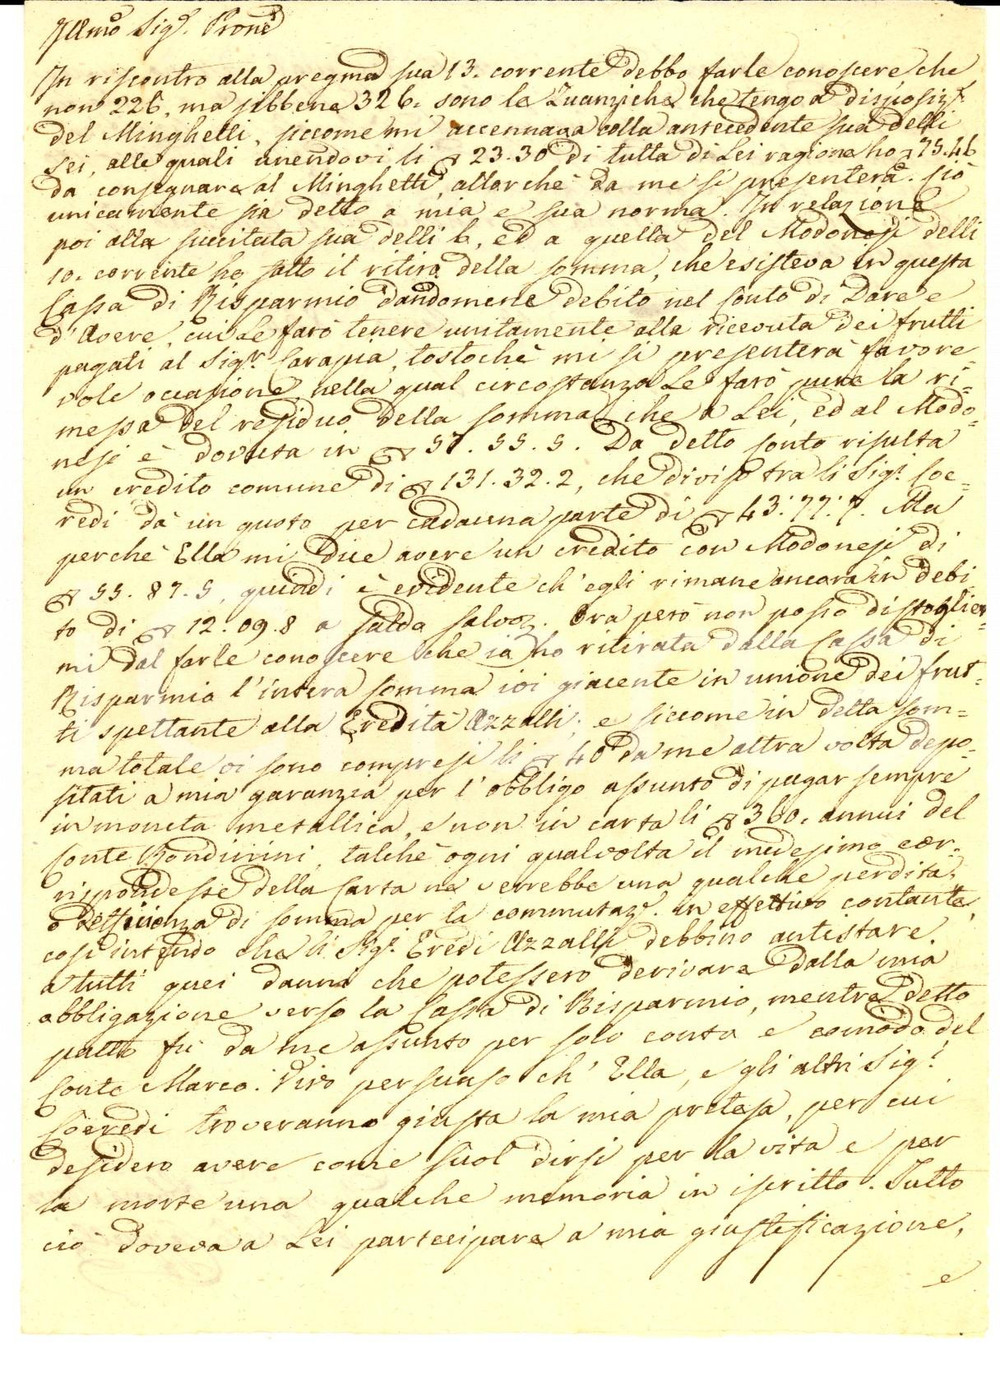 Illmo Sigr. Prone
In riscontro alla pregma sua 13. corrente debbo farle conoscere che
non 226, ma sibbene 326. sono le Zuanziche che tengo a disposizr.
del Minghetti, siccome mi accennava colla antecedente sua delli
sei, alle quali unendovi li 23.30 di tutta di Lei ragione ho 75.46
da consegnare al Minghetti, allorchè da me si presenterà. Ciò
unicamente sia detto a mia e sua norma. In relazione
poi alla succitata sua delli 6, ed a quella del Modonesi delli
10. corrente ho fatto il ritiro della somma, che esisteva in questa
Cassa di Risparmio dandomene debito nel conto di Dare e
d'Avere, cui Le farò tenere unitamente alla ricevuta dei frutti
pagati al Sigr. Carapia, tostochè mi si presenterà favore=
vole occasione, nella qual circostanza Le farò pure la ri=
messa del residuo della somma che a Lei, ed al Modo=
nesi è dovuta in 57.55.5. Da detto conto risulta
un credito comune di 131.32.2, che diviso tra li Sigi. Coe=
redi dà un quoto per cadauna parte di 43:77:7. Ma
perchè Ella mi dice avere un credito con Modonesi di
55.87.5, quindi è evidente ch'egli rimane ancora in debi
to di 12.09.8 a saldo salvo. Ora però non posso distoglier
mi dal farle conoscere che io ho ritirata dalla Cassa di
Risparmio l'intera somma ivi giacente in unione dei frut=
ti spettante alla Eredità Azzalli; e siccome in detta som=
ma totale vi sono compresi li 40 da me altra volta depo=
sitati a mia garanzia per l'obbligo assunto di pagar sempre
in moneta metallica, e non in carta li 360. annui del
Conte Bondinini, talchè ogni qualvolta il medesimo cor=
rispondesse della Carta ne verrebbe una qualche perdita,
o deficienza di somma per la commutaz. in effettivo contante,
così intendo che li Sigi. Eredi Azzalli debbino antistare
a tutti quei danni che potessero derivare dalla mia
obbligazione verso la Cassa di Risparmio, mentre detto
patto fù da me assunto per solo conto e comodo del
Conte Marco. Vivo persuaso ch'Ella, e gli altri Sigi.
Coeredi troveranno giusta la mia pretesa, per cui
desidero avere come suol dirsi per la vita e per
la morte una qualche memoria in iscritto. Tutto
ciò doveva a Lei partecipare a mia giustificazione,
e